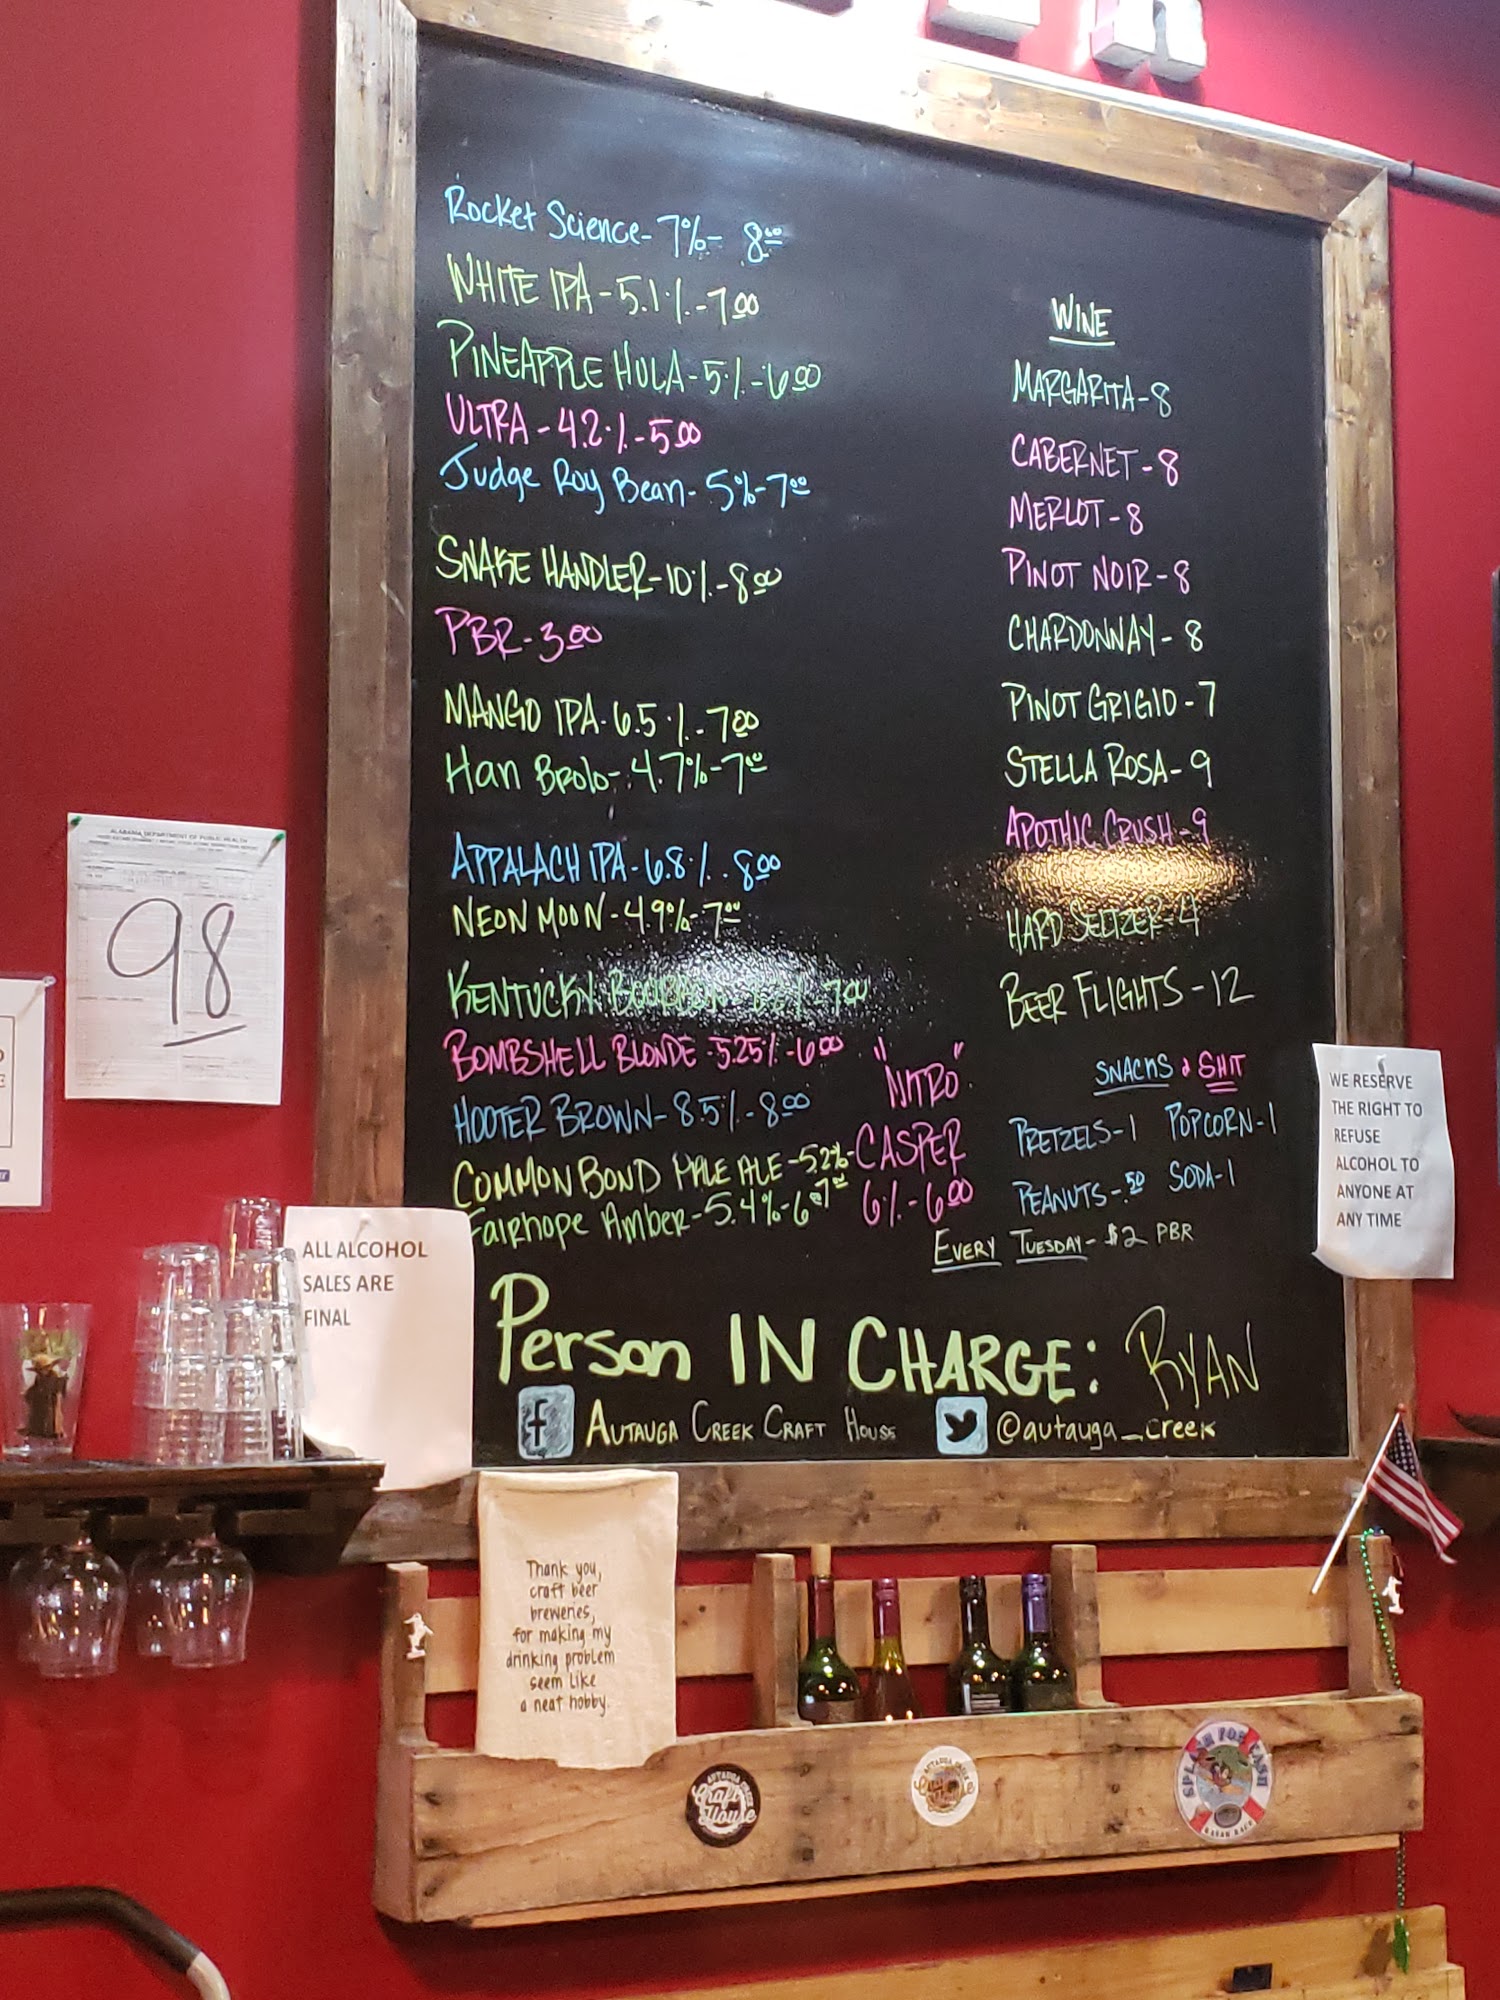 Rocket Science- 7%- 8.00
WHITE IPA - 5.1% - 7.00
PINEAPPLE HULA - 5% - 6.00
ULTRA - 4.2% - 5.00
Judge Roy Bean- 5%-7.00
SNAKE HANDLER-10%-8.00
PBR- 3.00
MANGO IPA- 6.5% - 7.00
Han Brolo- 4.7%-7.00
APPALACH IPA- 6.8% - 8.00
NEON MOON - 4.9%- 7.00
KENTUCKY BOURBON - 7.00
BOMBSHELL BLONDE -5.25% -6.00
HOOTER BROWN- 8.5% - 8.00
COMMON BOND PALE ALE -5.2%- 7.00
Fairhope Amber-5.4%-6.00
"NITRO"
CASPER
6% - 6.00
WINE
MARGARITA-8
CABERNET - 8
MERLOT - 8
PINOT NOIR - 8
CHARDONNAY - 8
PINOT GRIGIO - 7
STELLA ROSA - 9
APOTHIC CRUSH - 9
HARD SELTZER-4
BEER FLIGHTS - 12
SNACKS & SHIT
PRETZELS-1 POPCORN-1
PEANUTS-.50 SODA-1
EVERY TUESDAY- $2 PBR
Person IN CHARGE: RYAN
f AUTAUGA CREEK CRAFT HOUSE @autauga_creek
ALABAMA DEPARTMENT OF PUBLIC HEALTH
98
ALL ALCOHOL
SALES ARE
FINAL
WE RESERVE
THE RIGHT TO
REFUSE
ALCOHOL TO
ANYONE AT
ANY TIME
Thank you,
craft beer
breweries,
for making my
drinking problem
seem like
a neat hobby.
AUTAUGA CREEK
Craft
House
SPLASH FOR CASH